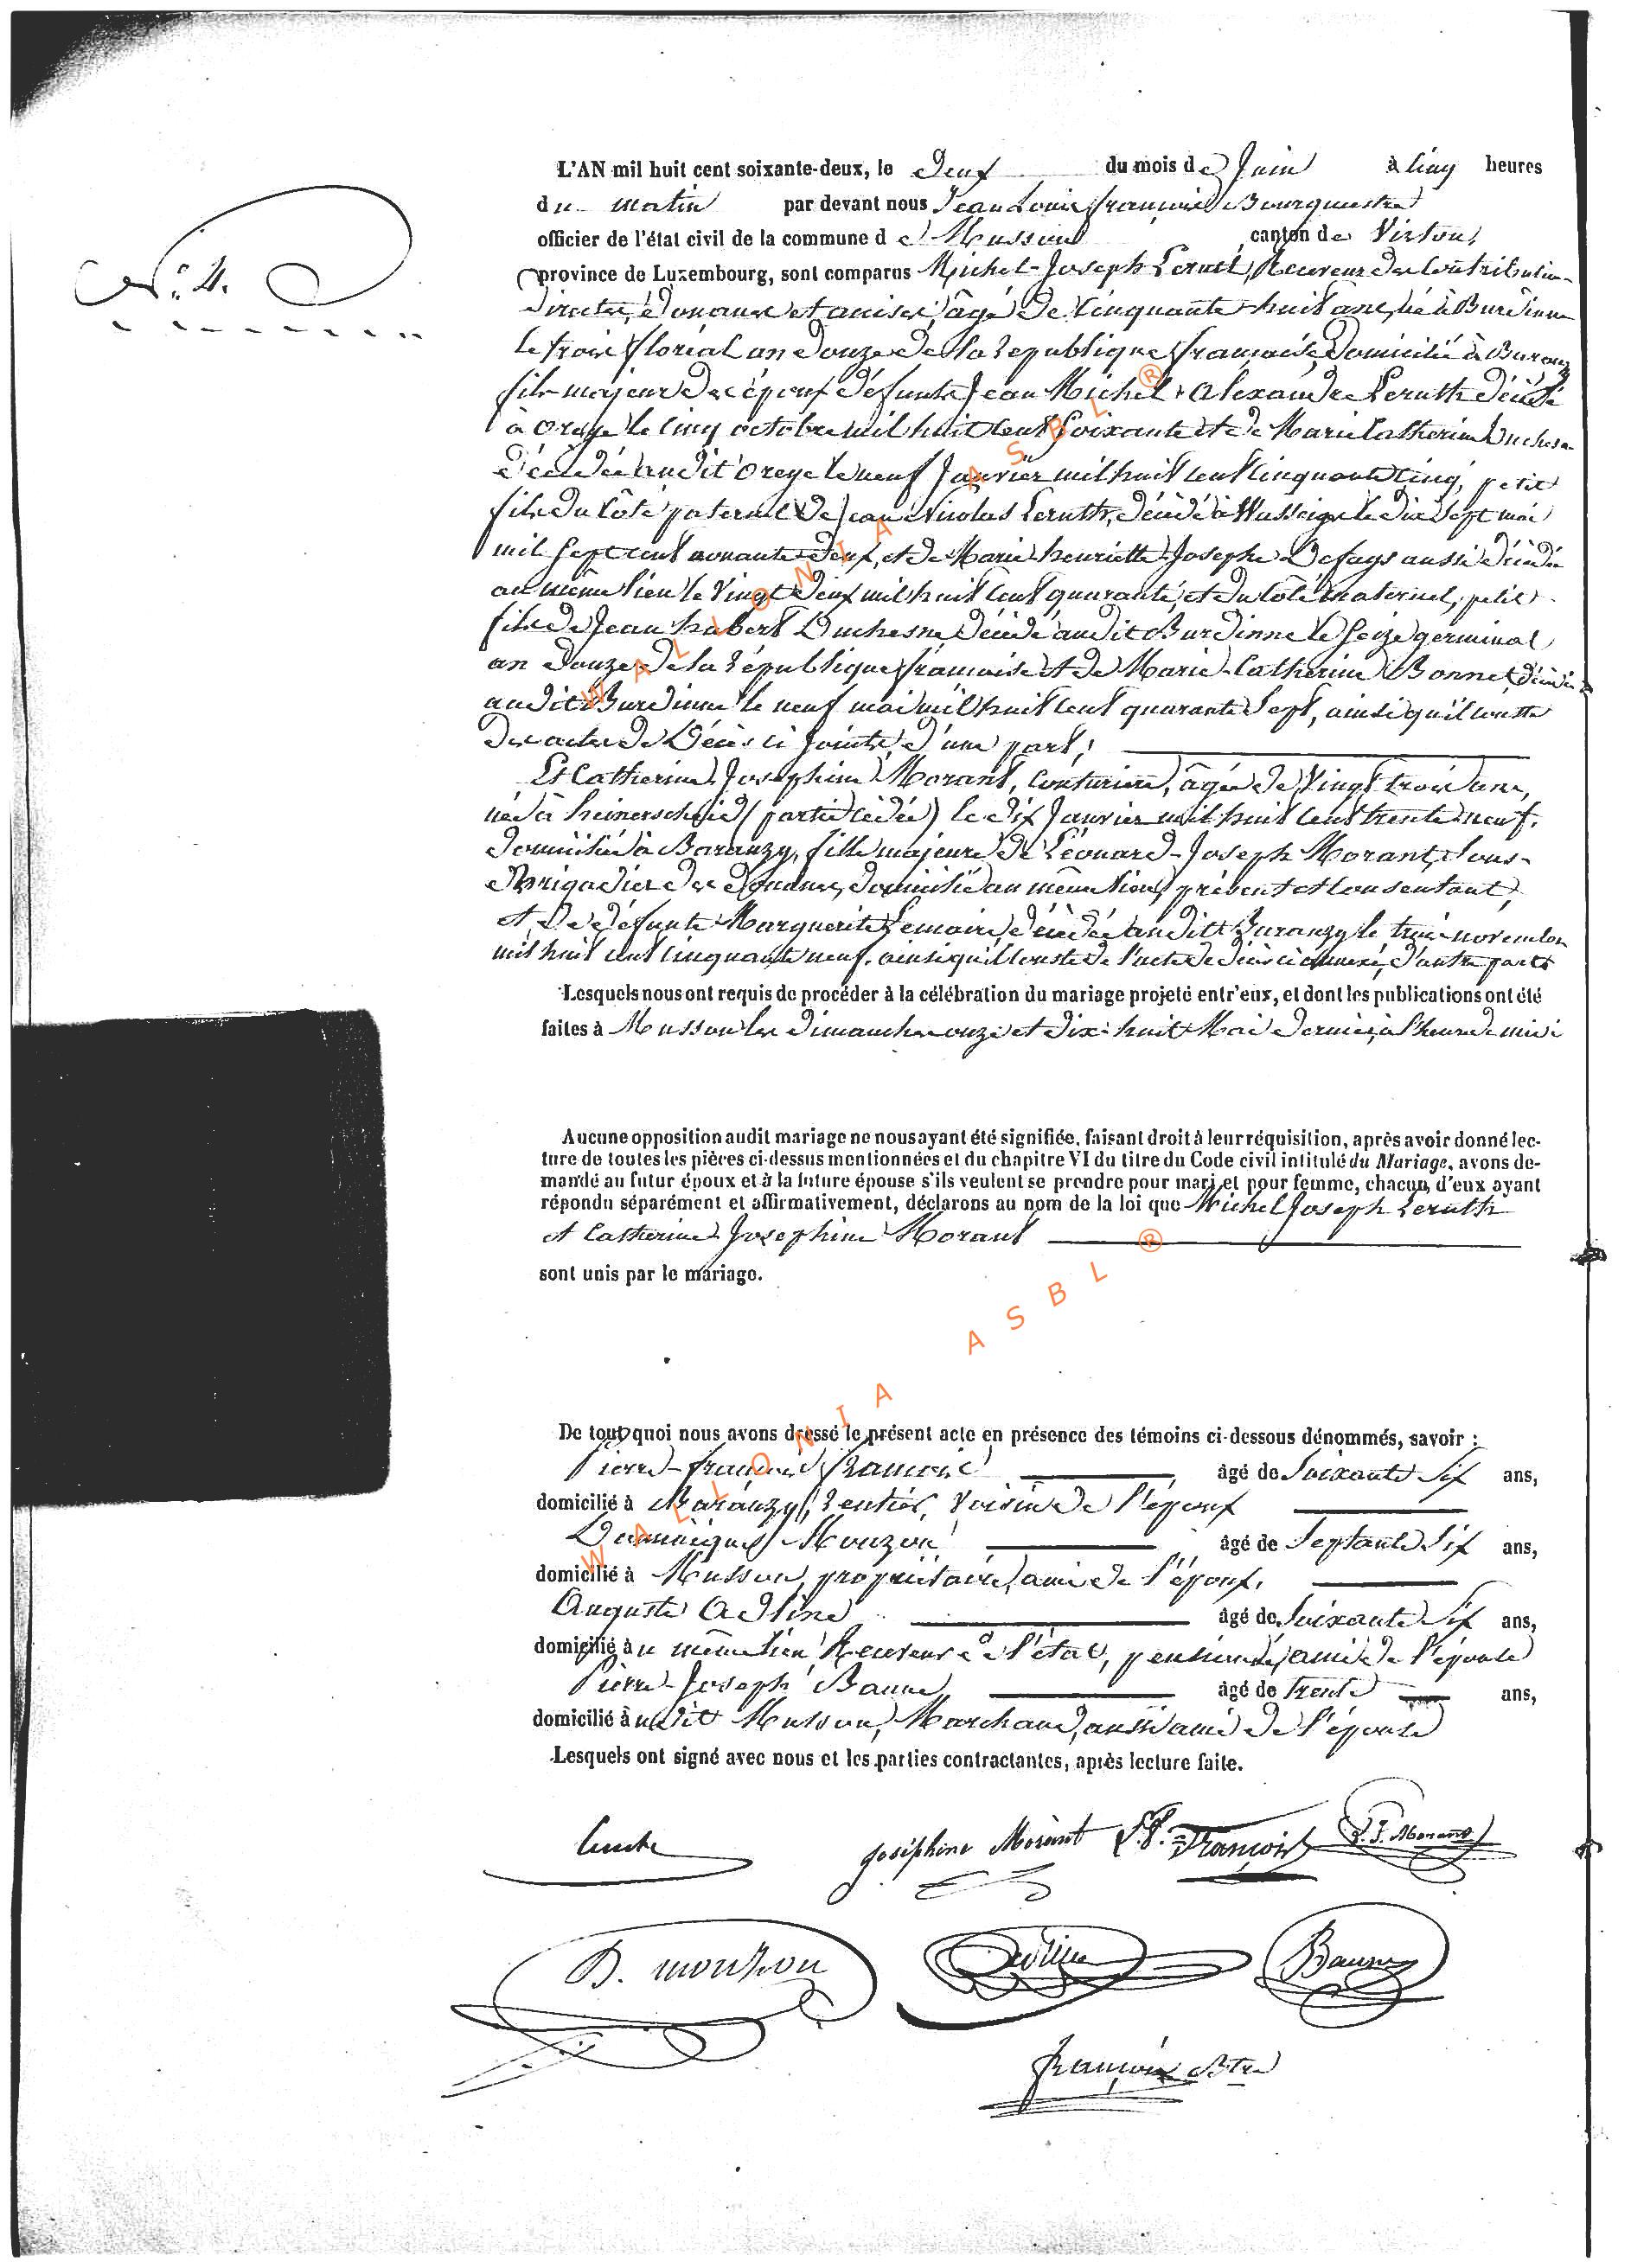 N.° 4.
L'AN mil huit cent soixante-deux, le deux du mois de Juin à cinq heures
du matin par devant nous Jean Louis françois Bourguestre
officier de l'état civil de la commune de Musson canton de Virton,
province de Luxembourg, sont comparus Michel-Joseph Leruth, Receveur des Contributions
directes, douanes et accises, âgé de Cinquante huit ans, né à Burdinne
le trois floréal an douze de la republique française, domicilié à Baranzy
fils majeur des époux défunts Jean Michel Alexandre Leruth décédé
à Oreye le cinq octobre mil huit cent soixante et de Marie Catherine Duchesne
décédée audit Oreye le neuf Janvier mil huit cent cinquante cinq, petit
fils du côté paternel de Jean Nicolas Leruth, décédé à Wasseige le dix sept mai
mil sept cent nonante deux, et de Marie henriette Josephe Defays aussi décédée
au même lieu le vingt deux mil huit cent quarante, et du côté maternel, petit
fils de Jean hubert Duchesne décédé audit Burdinne le seize germinal
an douze de la république française et de Marie-Catherine Bonnet, décédée
audit Burdinne le neuf mai mil huit cent quarante sept, ainsi qu'il conste
des actes de Décès ci Joints, d'une part;
Et Catherine Josephine Morant, Couturière, âgée de Vingt trois ans,
née à heinerscheid (partie cédée) le dix Janvier mil huit cent trente neuf,
domiciliée à Baranzy, fille majeure de Léonard-Joseph Morant, Sous-
Brigadier des douanes, domicilié au même lieu, présent et consentant,
et de défunte Marguerite Lemaire décédée audit Baranzy le trois novembre
mil huit cent cinquante neuf, ainsi qu'il conste de l'acte de décès ci annexé, d'autre part
Lesquels nous ont requis de procéder à la célébration du mariage projeté entr'eux, et dont les publications ont été
faites à Musson les dimanches onze et dix-huit Mai dernier, à l'heure de midi
Aucune opposition audit mariage ne nous ayant été signifiée, faisant droit à leur réquisition, après avoir donné lec-
ture de toutes les pièces ci-dessus mentionnées et du chapitre VI du titre du Code civil intitulé du Mariage, avons de-
mandé au futur époux et à la future épouse s'ils veulent se prendre pour mari et pour femme, chacun d'eux ayant
répondu séparément et affirmativement, déclarons au nom de la loi que Michel Joseph Leruth
et Catherine Josephine Morant
sont unis par le mariage.
De tout quoi nous avons dressé le présent acte en présence des témoins ci-dessous dénommés, savoir :
Pierre-françois françois âgé de Soixante Six ans,
domicilié à Baranzy, rentier, voisin de l'époux
Dominique Mouzon âgé de Septante Six ans,
domicilié à Musson, propriétaire, ami de l'époux,
Auguste Adline âgé de Soixante Six ans,
domicilié au même lieu Receveur de l'état, pensionné, ami de l'épouse
Pierre-Joseph Baune âgé de trente ans,
domicilié audit Musson, Marchand, aussi ami de l'épouse
Lesquels ont signé avec nous et les parties contractantes, après lecture faite.
Leruth Joséphine Morant P.F. François L.J. Morant
D. mouzon Adline Baune
françois Btre
WALLONIA ASBL ®
WALLONIA ASBL ®